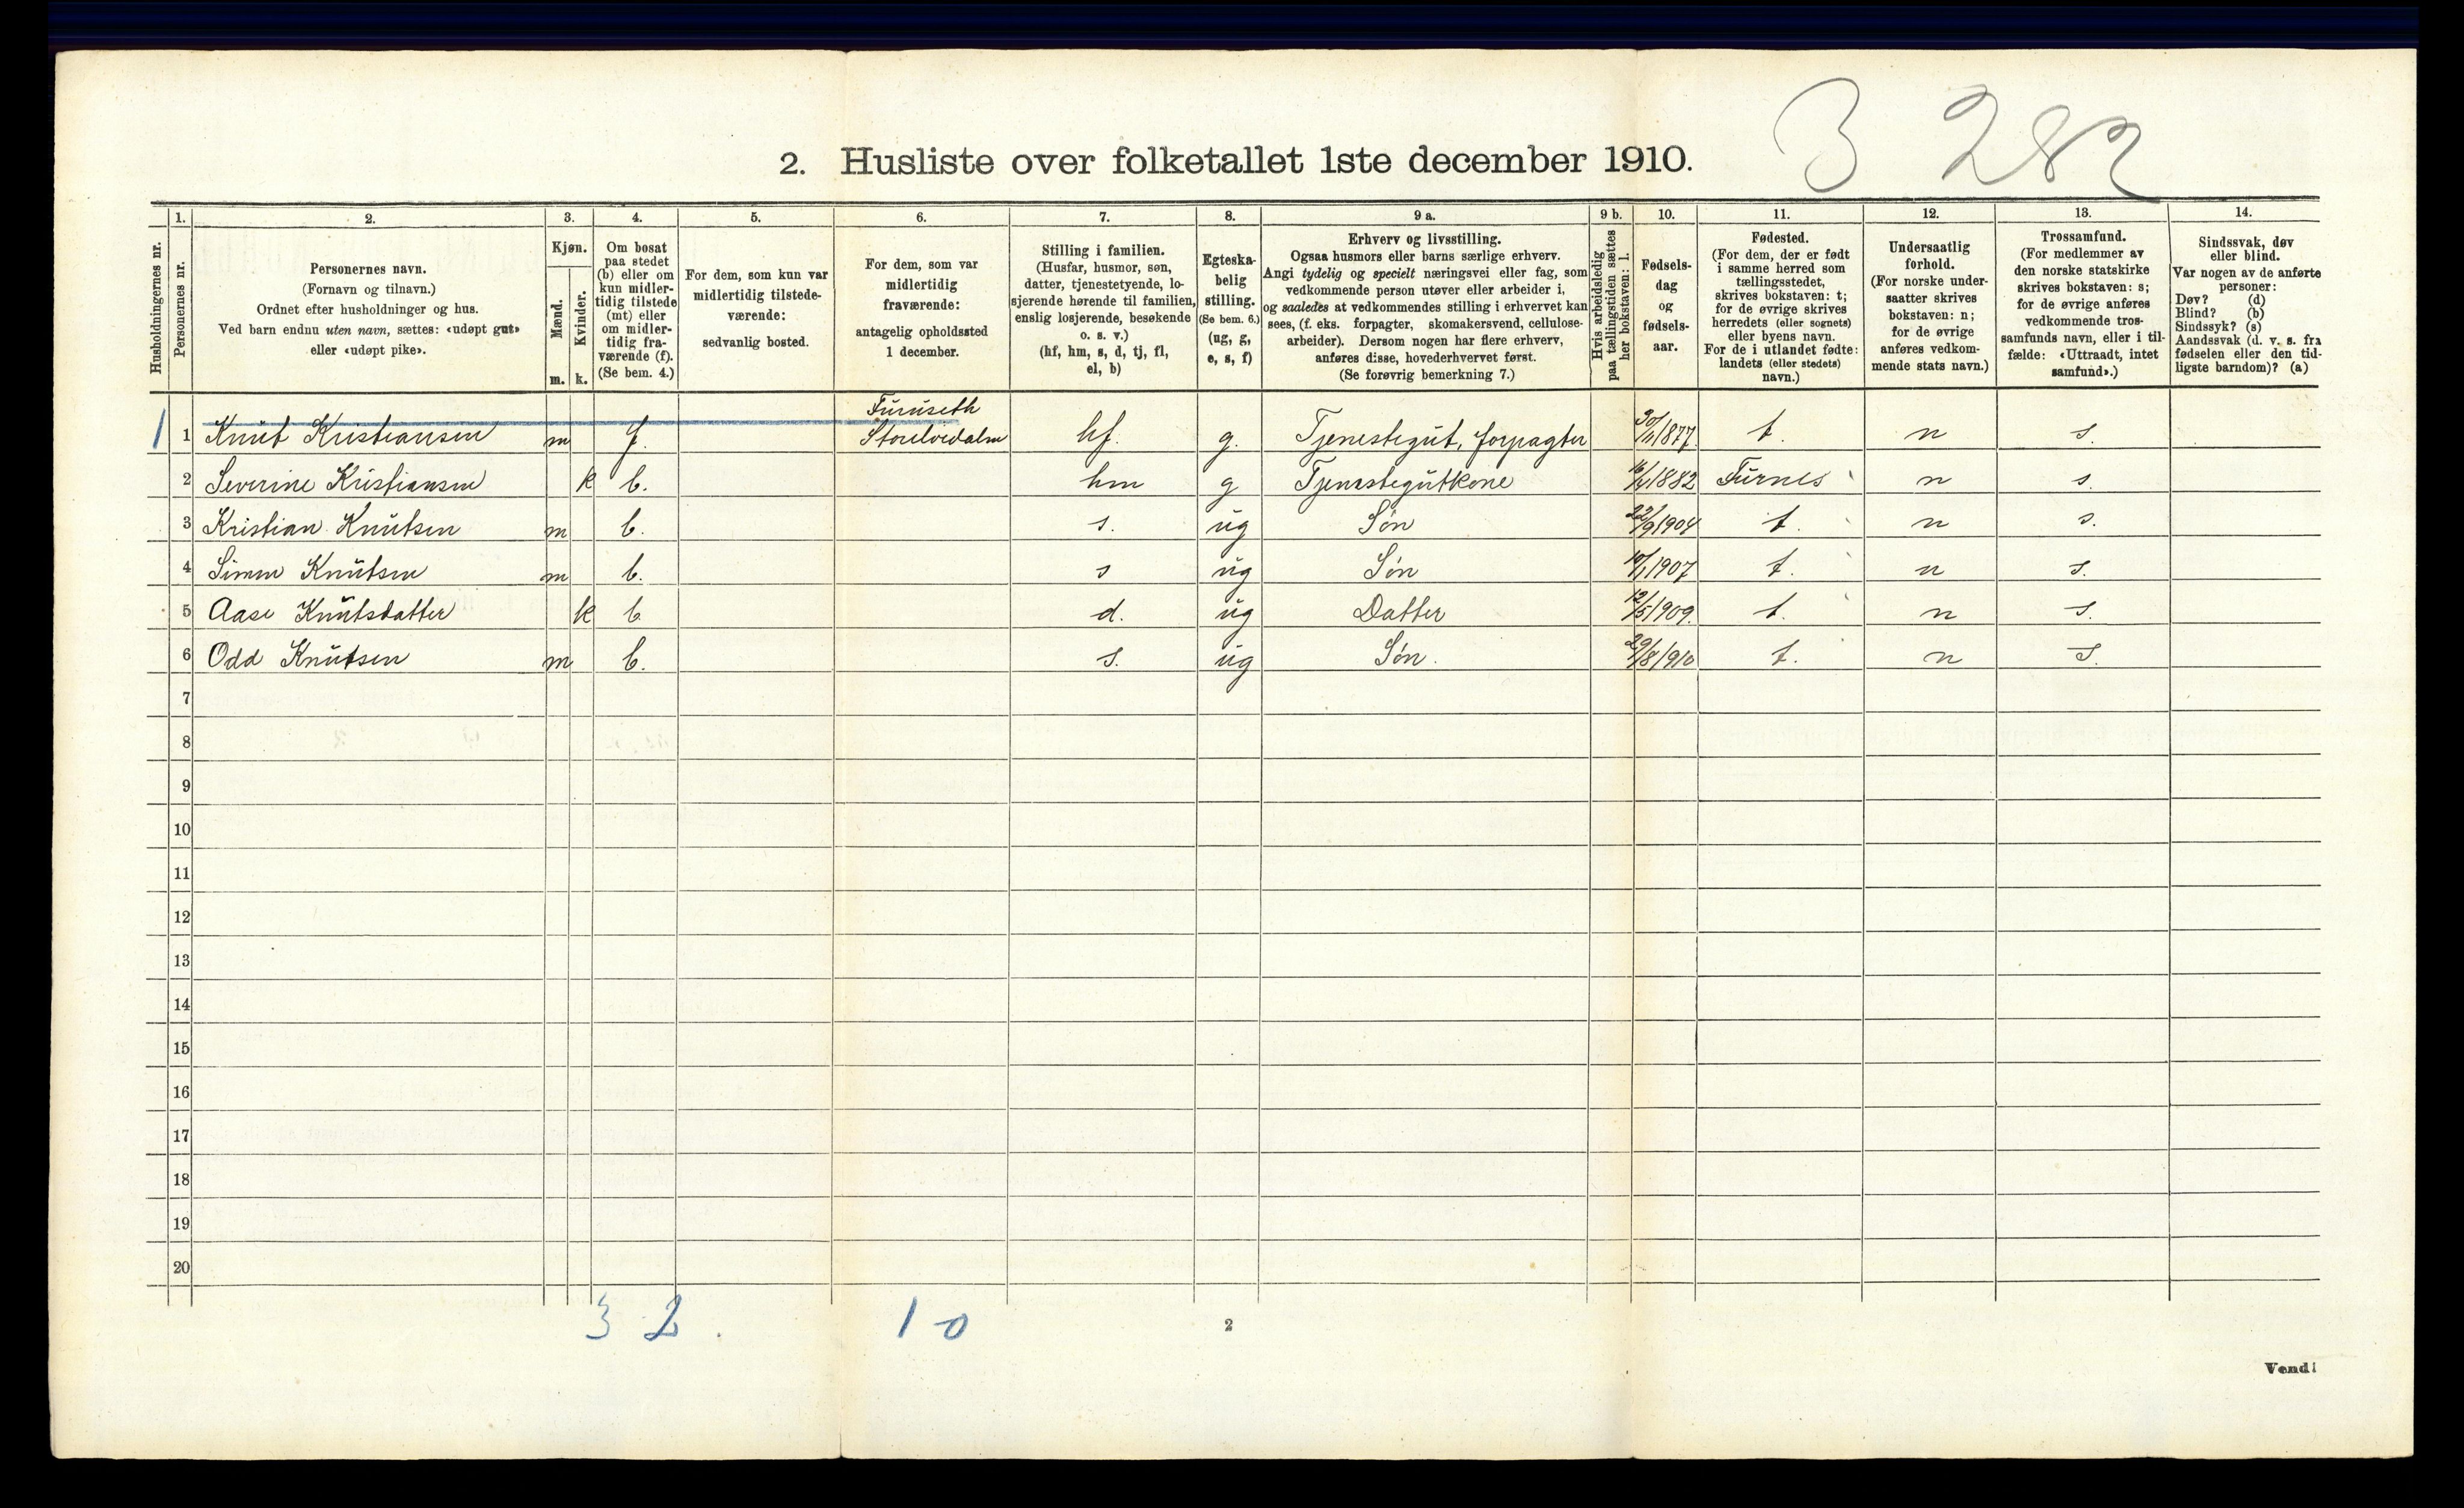 3 282
2. Husliste over folketallet 1ste december 1910.
Husholdningernes nr.
1.
Personernes nr.
2.
Personernes navn.
(Fornavn og tilnavn.)
Ordnet efter husholdninger og hus.
Ved barn endnu uten navn, sættes: «udøpt gut»
eller «udøpt pike».
3.
Kjøn.
Mænd.
Kvinder.
m. k.
4.
Om bosat
paa stedet
(b) eller om
kun midler-
tidig tilstede
(mt) eller
om midler-
tidig fra-
værende (f).
(Se bem. 4.)
5.
For dem, som kun var
midlertidig tilstede-
værende:
sedvanlig bosted.
6.
For dem, som var
midlertidig
fraværende:
antagelig opholdssted
1 december.
7.
Stilling i familien.
(Husfar, husmor, søn,
datter, tjenestetyende, lo-
sjerende hørende til familien,
enslig losjerende, besøkende
o. s. v.)
(hf, hm, s, d, tj, fl,
el, b)
8.
Egteska-
belig
stilling.
(Se bem. 6.)
(ug, g,
e, s, f)
9 a.
Erhverv og livsstilling.
Ogsaa husmors eller barns særlige erhverv.
Angi tydelig og specielt næringsvei eller fag, som
vedkommende person utøver eller arbeider i,
og saaledes at vedkommendes stilling i erhvervet kan
sees, (f. eks. forpagter, skomakersvend, cellulose-
arbeider). Dersom nogen har flere erhverv,
anføres disse, hovederhvervet først.
(Se forøvrig bemerkning 7.)
9 b.
Hvis arbeidsledig
paa tællingstiden sættes
her bokstaven: l.
10.
Fødsels-
dag
og
fødsels-
aar.
11.
Fødested.
(For dem, der er født
i samme herred som
tællingsstedet,
skrives bokstaven: t;
for de øvrige skrives
herredets (eller sognets)
eller byens navn.
For de i utlandet fødte:
landets (eller stedets)
navn.)
12.
Undersaatlig
forhold.
(For norske under-
saatter skrives
bokstaven: n;
for de øvrige
anføres vedkom-
mende stats navn.)
13.
Trossamfund.
(For medlemmer av
den norske statskirke
skrives bokstaven: s;
for de øvrige anføres
vedkommende tros-
samfunds navn, eller i til-
fælde: «Uttraadt, intet
samfund».)
14.
Sindssvak, døv
eller blind.
Var nogen av de anførte
personer:
Døv? (d)
Blind? (b)
Sindssyk? (s)
Aandssvak (d. v. s. fra
fødselen eller den tid-
ligste barndom)? (a)
Furuseth
1 1 Knut Kristiansen m f. Storelvedalen hf. g. Tjenestegut, forpagter 30/11 1877. t. n s.
2 Severine Kristiansen k b. hm g Tjenestegutkone 1882 Furnes n s.
3 Kristian Knutsen m b. s. ug Søn 22/9 1904 t. n s.
4 Simen Knutsen m b. s ug Søn 10/1 1907 t. n s.
5 Aase Knutsdatter k b d. ug Datter 12/5 1909. t. n s.
6 Odd Knutsen m b. s. ug Søn. 29/8 1910 t. n s.
7
8
9
10
11
12
13
14
15
16
17
18
19
20
3 2. 1 0
2
Vend!